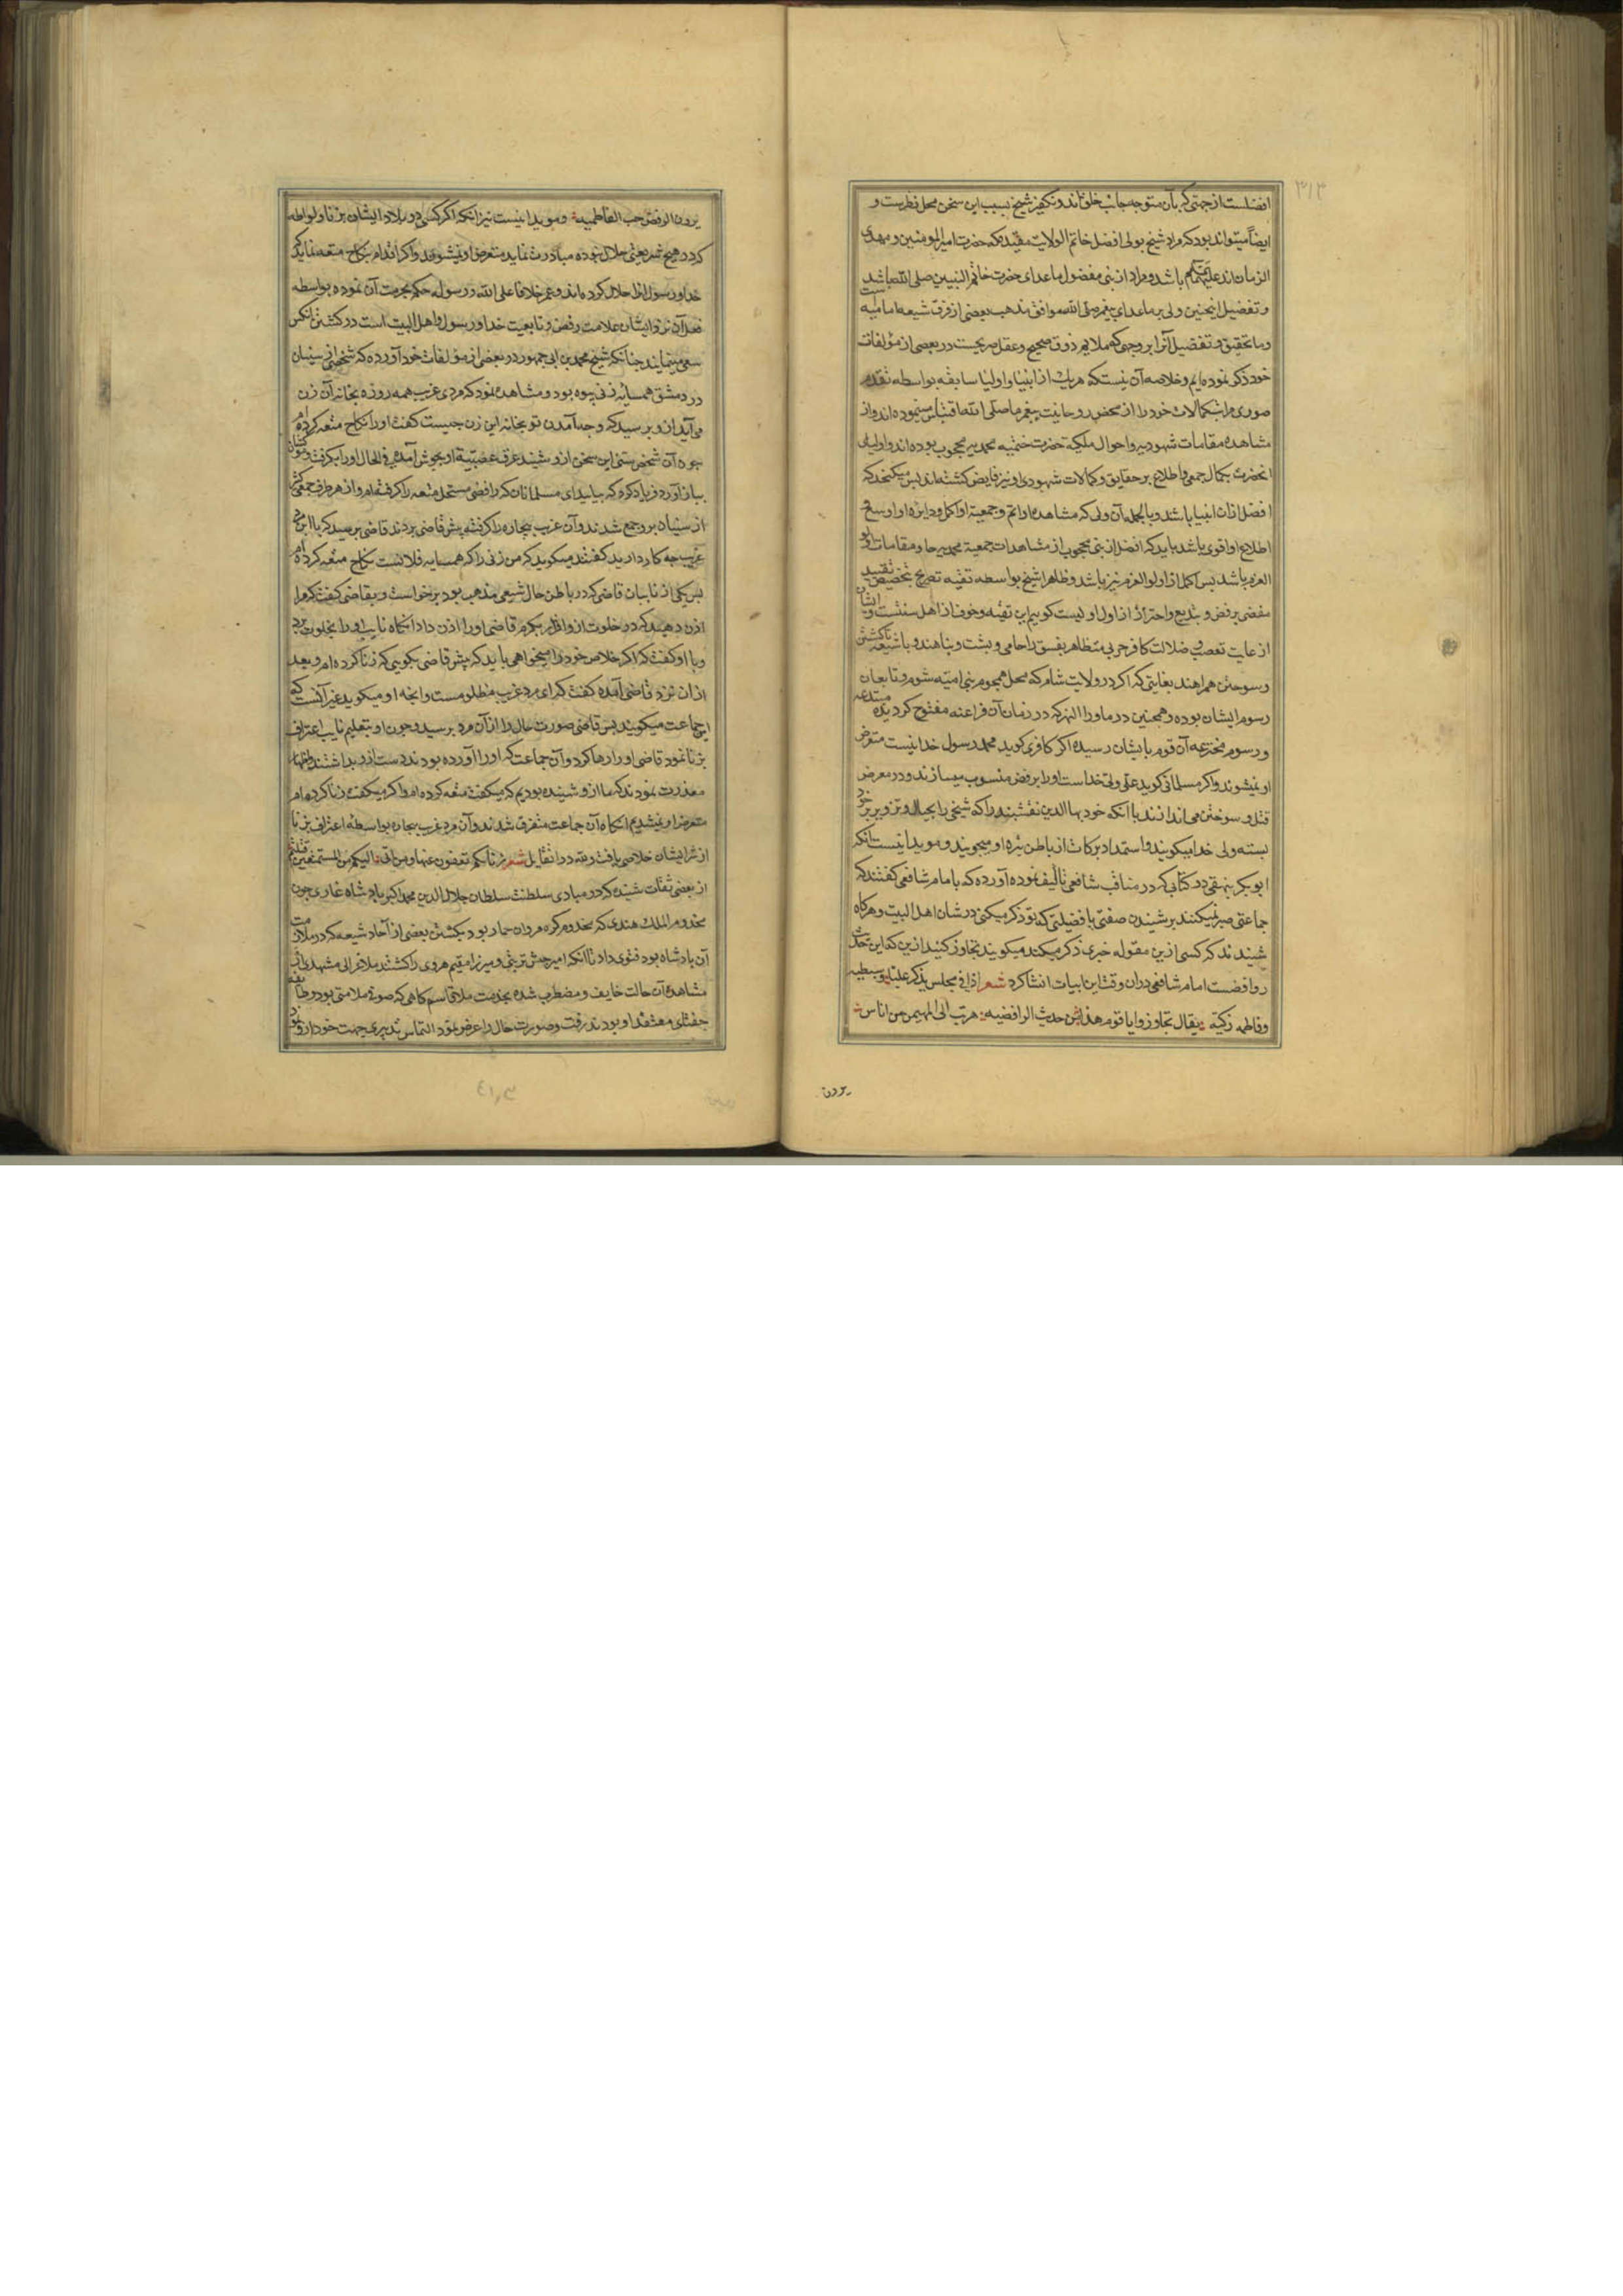 ۳۱۳
افضلست از جهتی که بآن متوجه جانب خلق‌اند و تکفیر شیخ بسبب این سخن محل نظرست و
ایضاً میتواند بود که مراد شیخ بولی افضل خاتم الولایت مقیده که حضرت امیر المومنین و مهدی
الزمان‌اند علیهما باشد و مراد از نبی مفضول ماعدای حضرت خاتم النبیین صلی الله باشد
و تفضیل اینچنین ولی بر ماعدای پیغمبر صلی الله موافق مذهب بعضی از فرق شیعه امامیه است
و ما تحقیق و تفضیل آنرا بر وجهی که ملایم ذوق صحیح و عقل صریحست در بعضی از مؤلفات
خود ذکر نموده‌ایم و خلاصه آن نیست که هر یک از انبیا و اولیا سابقه بواسطه تقدم
صوری مراتب کمالات خود را از محض روحانیت پیغمبر ما صلی الله اقتباس مینموده‌اند و از
مشاهده مقامات شهودیه و احوال ملکیه حضرت ختمیه محمدیه محجوب بوده‌اند و اولیای
انحضرت بکمال جمعی و اطلاع بر حقایق و کمالات شهودی او نیز فایض کشته‌اند پس میکنجد که
افضل از ان انبیا باشند و بالجمله آن ولی که مشاهده او اتم و جمعیة او اکمل و دایره او اوسع و
اطلاع او اقوی باشد باید که افضل از نبی محجوب از مشاهدات جمعیة محمدیه جا و مقامات اولو
العزم باشد پس اکمل از اولو العزم نیز باشد و ظاهرا شیخ بواسطه تقیه تصریح تخصیص و تقیید
مفضی برفض و بتدیع و احتراز از اول اولیست کوییم این تقیه و خوف از اهل سنتست و ایشان
از غایت تعصب و ضلالت کافر حربی متظاهر بفسق را حامی و پشت و پناهند و با شیعه تا کشتن
و سوختن همراهند بغایتی که اکر در ولایت شام که محل هجوم بنی امیه شوم و تابعان
رسوم ایشان بوده و همچنین در ماورا النهر که در زمان آن فراعنه مفتوح کردیده مبتدعه
و رسوم مخترعه آن قوم بایشان رسیده اکر کافری کوید محمد رسول خدا نیست متعرض
او نمیشوند و اکر مسلمانی کوید علی ولی خداست او را برفض منسوب میسازند و در معرض
قتل و سوختن می‌اندازند با انکه خود بها الدین نقشبند را که شیخی را بحیال و تزویر بر خود
بسته ولی خدا میکویند و استمداد برکات از باطن تیره او میجویند و موید اینست انکه
ابو بکر بیهقی در کتابی که در مناقب شافعی تالیف نموده آورده که با امام شافعی کفتند که
جماعتی صبر نمیکنند بر شنیدن صفتی یا فضیلتی که تو ذکر میکنی در شان اهل البیت و هرکاه
شنیدند که کسی ازین مقوله خبری ذکر میکند میکویند تجاوز کنید ازین که این حدیث
روافضست امام شافعی دران وقت این ابیات انشا کرد شعر اذا فی مجلس یذکر علیا و سبطیه
و فاطمه زکیة یقال تجاوزوا یا قوم هذا من حدیث الرافضیه هربت الی المهیمن من اناس
یرون
یرون الرفض حب الفاطمیه و موید اینست نیز انکه اکر کسی در بلاد ایشان بزنا و لواطه
که در هیچ شریعتی حلال نبوده مبادرت نماید متعرض او نمیشوند و اکر اقدام بنکاح متعه نماید که
خدا و رسول انرا حلال کرده‌اند و عمر خلافا علی الله و رسوله حکم بحرمت آن نموده بواسطه
فعل آن نزد ایشان علامت رفض و تابعیت خدا و رسول و اهل البیت است در کشتن انکس
سعی مینمایند چنانکه شیخ محمد بن ابی جمهور در بعضی از مؤلفات خود آورده که شخصی از سنیان
در دمشق همسایه زنی بیوه بود و مشاهده نمود که مردی غریب همه روزه بخانه آن زن
می‌آید از و پرسید که وجه آمدن تو بخانه این زن چیست کفت او را نکاح متعه کرده‌ام
چون آن شخص سنی این سخن ازو شنید عرق عصبیة او بجوش آمده فی الحال او را بکرفت و کشان
ببازار آورد و فریاد کرد که بیایید ای مسلمانان که رافضی مستحل متعه را کرفته‌ام و از هر طرف جمعی کثیر
از سنیان برو جمع شدند و آن غریب بیچاره را کرفته پیش قاضی بردند قاضی پرسید که با این مرد
غریب چه کار دارید کفتند میکوید که من زنی را که همسایه فلانست نکاح متعه کرده‌ام
پس یکی از نایبان قاضی که در باطن حال شیعی مذهب بود برخواست و بقاضی کفت که مرا
اذن دهید که در خلوت از و اقرار بکیرم قاضی او را اذن داد انکاه نایب او را بخلوت برد
و با او کفت که اکر خلاص خود را میخواهی باید که پیش قاضی بکویی که زنا کرده‌ام و بعد
از ان نزد قاضی آمده کفت که ای مرد غریب مظلومست و انچه او میکوید غیر آنست که
این جماعت میکویند پس قاضی صورت حال را از آن مرد پرسید و چون او بتعلیم نایب اعتراف
بزنا نمود قاضی او را رها کرد و آن جماعت که او را آورده بودند دست ازو بداشتند و اظهار
معذرت نمودند که ما از و شنیده بودیم که میکفت متعه کرده‌ام و اکر میکفت زنا کرده‌ام
متعرض او نمیشدیم انکاه آن جماعت متفرق شدند و آن مرد غریب بیچاره بواسطه اعتراف بزنا
از شر ایشان خلاصی یافت و لله در القایل شعر
از بعضی ثقات شنیده که در مبادی سلطنت سلطان جلال الدین محمد اکبر پادشاه غازی چون
مخدوم الملک هندی که مخدوم کره مروان حمار بود بکشتن بعضی از آحاد شیعه که در ملازمت
آن پادشاه بود فتوی داد تا انکه امیر حبش تربتی و میرزا مقیم هروی را کشتند ملا غزالی مشهدی از
مشاهده آن حالت خایف و مضطرب شده بخدمت ملا قاسم کاهی که صوفی ملامتی بود و طایفه
جغتای معتقد او بودند رفت و صورت حال را عرض نمود التماس تدبیری جهت خود ازو نمود